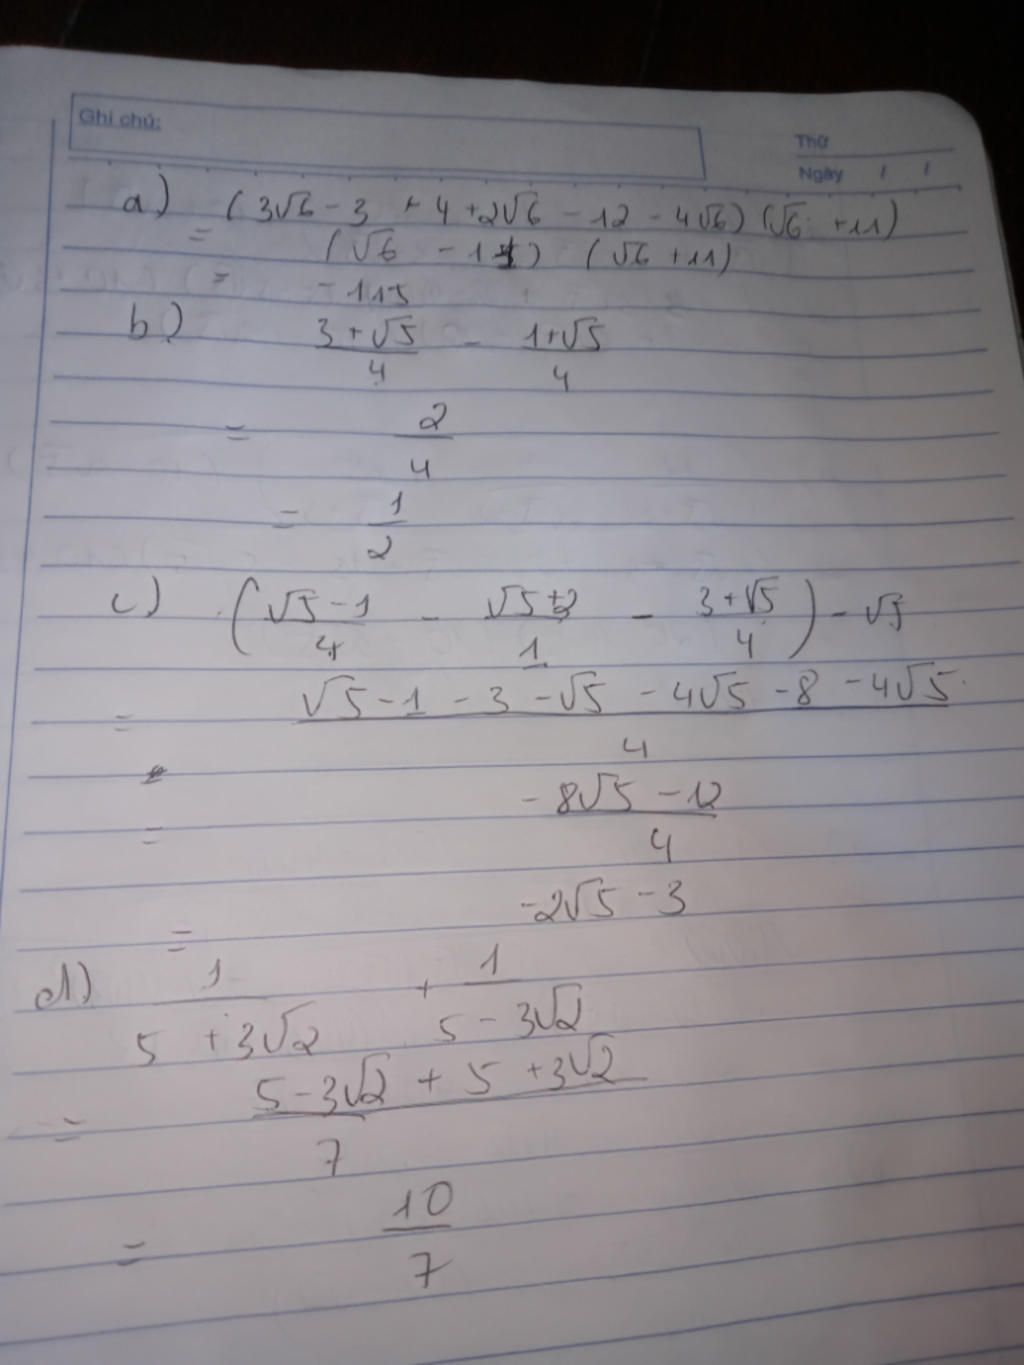 Ghi chú:
Thứ
Ngày / /
a) (3√6 - 3 + 4 + 2√6 - 12 - 4√6) (√6 + 11)
= (√6 - 11) (√6 + 11)
= -115
b) (3 + √5)/4 - (1+√5)/4
= 2/4
= 1/2
c) ((√5 - 1)/4 - (√5 + 2)/1 - (3 + √5)/4) - √5
= (√5 - 1 - 3 - √5 - 4√5 - 8 - 4√5)/4
= (-8√5 - 12)/4
= -2√5 - 3
d) 1/(5 + 3√2) + 1/(5 - 3√2)
= (5 - 3√2 + 5 + 3√2)/7
= 10/7